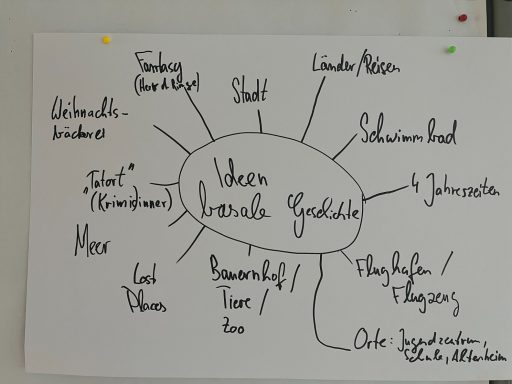 Fantasy
(Herr d. Ringe)
Stadt
Länder/Reisen
Weihnachts-
bäckerei
Schwimmbad
"Tatort"
(Krimidinner)
Ideen
basale Geschichte
4 Jahreszeiten
Meer
Lost
Places
Bauernhof/
Tiere/
Zoo
Flughafen/
Flugzeug
Orte: Jugendzentrum,
Schule, Altenheim